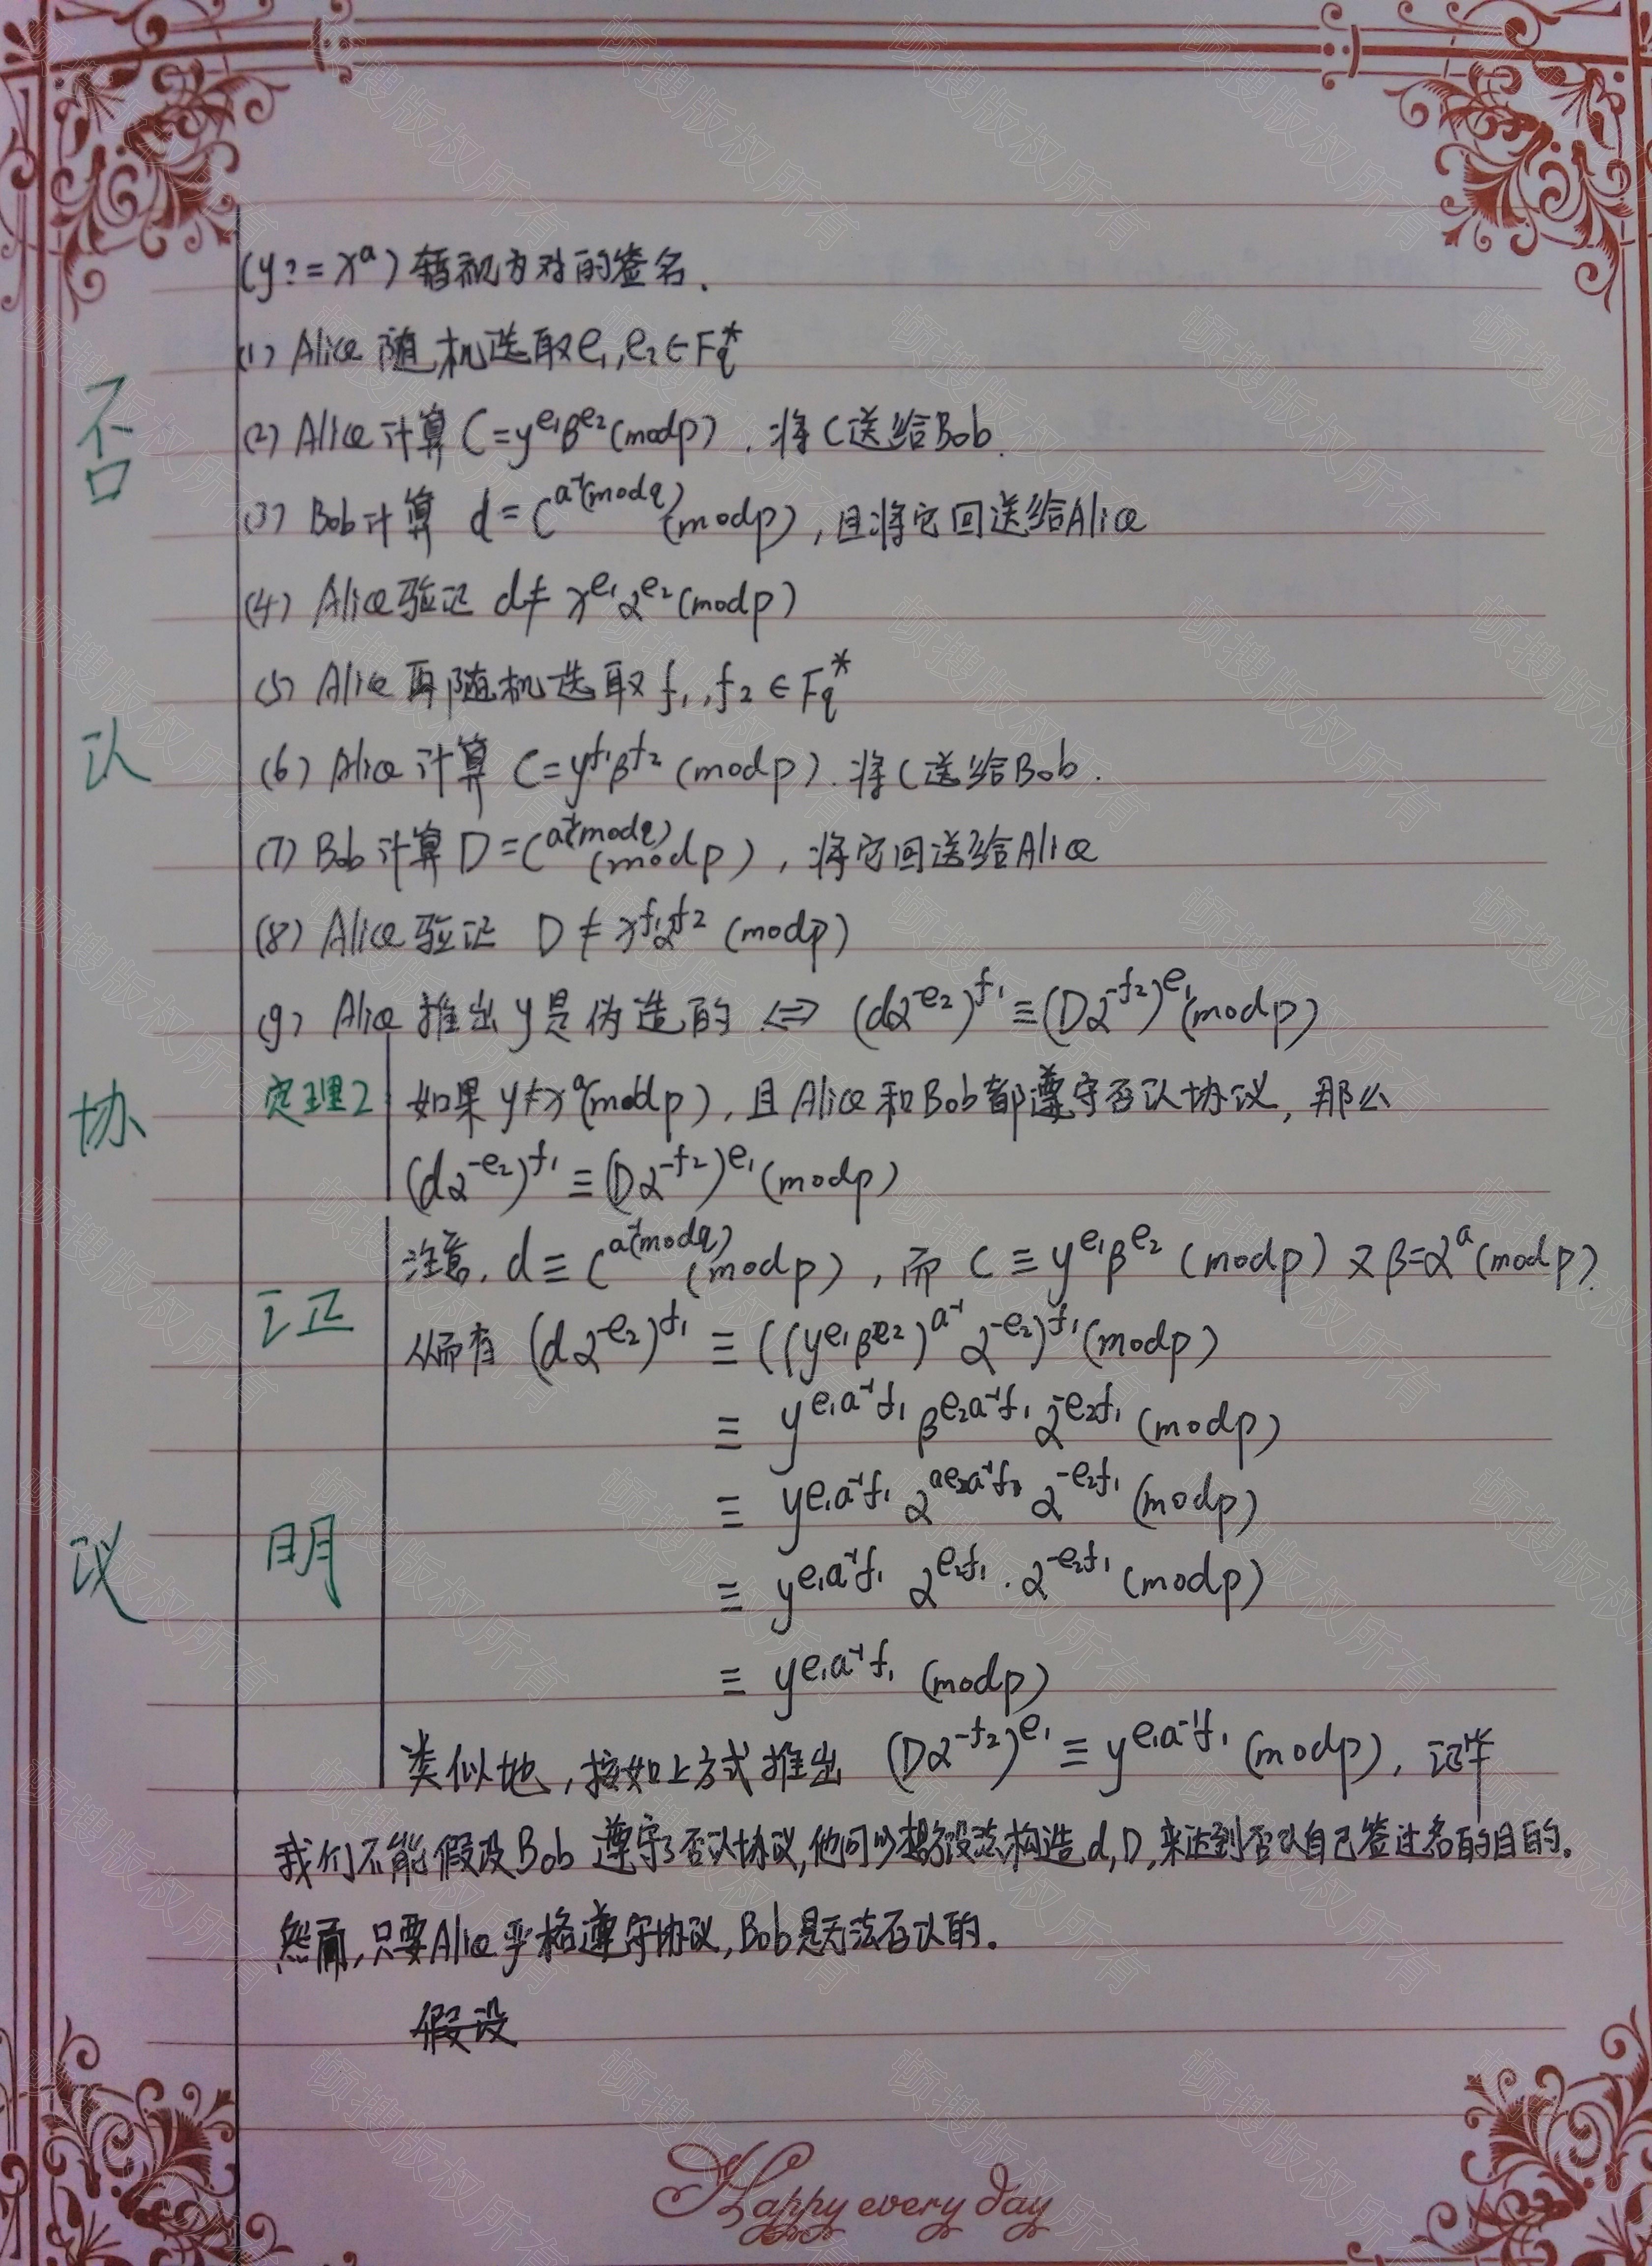 (y?=x^a) 暂视为对的签名.
(1) Alice 随机选取 e₁,e₂∈F_q^*
(2) Alice 计算 C=y^{e₁}β^{e₂}(mod p). 将C送给Bob.
(3) Bob计算 d=C^{a⁻¹(mod q)}(mod p), 且将它回送给Alice
(4) Alice验证 d≠x^{e₁}α^{e₂}(mod p)
(5) Alice 再随机选取 f₁,f₂∈F_q^*
(6) Alice 计算 C=y^{f₁}β^{f₂}(mod p). 将C送给Bob.
(7) Bob计算 D=C^{a⁻¹(mod q)}(mod p), 将它回送给Alice
(8) Alice 验证 D≠x^{f₁}α^{f₂}(mod p)
(9) Alice 推出 y是伪造的 ⇔ (dα^{-e₂})^{f₁}≡(Dα^{-f₂})^{e₁}(mod p)
否认协议
定理2 如果 y≠x^a(mod p), 且Alice和Bob都遵守否认协议, 那么
(dα^{-e₂})^{f₁}≡(Dα^{-f₂})^{e₁}(mod p)
证明
注意, d≡C^{a⁻¹(mod q)}(mod p), 而 C≡y^{e₁}β^{e₂}(mod p) 又 β=α^a(mod p).
从而有 (dα^{-e₂})^{f₁}≡((y^{e₁}β^{e₂})^{a⁻¹}α^{-e₂})^{f₁}(mod p)
≡y^{e₁a⁻¹f₁}β^{e₂a⁻¹f₁}α^{-e₂f₁}(mod p)
≡y^{e₁a⁻¹f₁}α^{ae₂a⁻¹f₁}α^{-e₂f₁}(mod p)
≡y^{e₁a⁻¹f₁}α^{e₂f₁}·α^{-e₂f₁}(mod p)
≡y^{e₁a⁻¹f₁}(mod p)
类似地, 按如上方式推出 (Dα^{-f₂})^{e₁}≡y^{e₁a⁻¹f₁}(mod p), 证毕
我们不能假设Bob 遵守了否认协议,他可以想方设法构造d,D,来达到否认自己签过名的目的.
然而,只要Alice严格遵守协议,Bob是无法否认的.
假设
Happy every day
顿搜版权所有